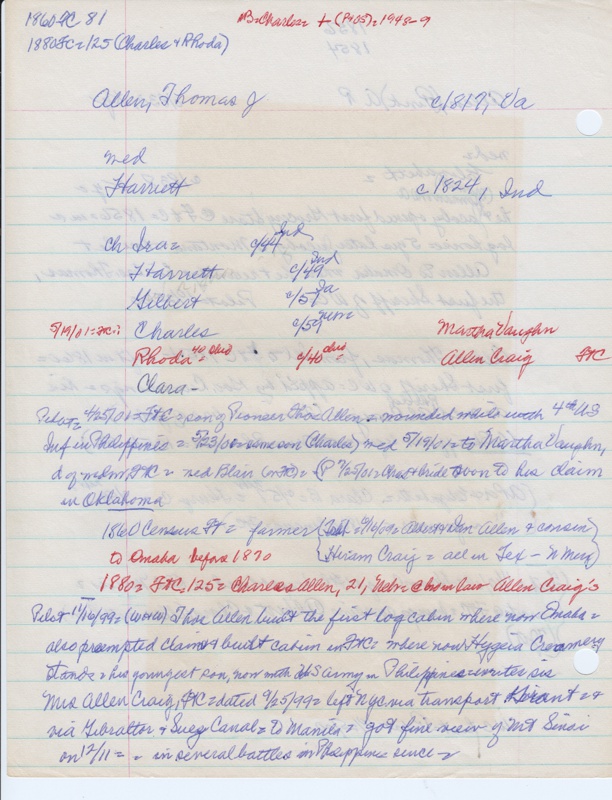 1860 FC 81
B=Charles= + (P105)= 1948-9
1880 FC=125 (Charles & Rhoda)
Allen, Thomas J c/1817, Va
med
Harriett c 1824, Ind
ch Ira= c/44 Ind
Harriett c/49 Ind
Gilbert c/57 Ia
5/19/01=FtC= Charles c/59 Martha Vaughn
Rhoda=40 Ohio c/40 Ohio Allen Craig FtC
Clara-
Pilot= 4/25/01=FtC= son of Pioneer Thos Allen = wounded while with 4th US
Inf in Philippines = 5/23/01= same son (Charles) med 5/19/01=to Martha Vaughn,
d of FtC = Blair = (P 7/25/01= Chas & bride soon to his claim
in Oklahoma
1860 Census Ft = farmer Allen & cousin
to Omaha before 1870 Hiram Craig = all in Tex - N Mex
1880= FtC, 125= Charles Allen, 21, Neb= c bro in law Allen Craig's
Pilot 11/16/99= Thos Allen built the first log cabin where now Omaha=
also preempted claim & built cabin in FtC= where now Hygeia Creamery
stands = his youngest son, now with US Army in Philippines=writes sis
Mrs Allen Craig, FtC=dated 9/25/99= left NYC via transport Grant = &
via Gibraltar & Suez Canal= to Manila = got fine view of Mt Sinai
on 12/11= = in several battles in Philippine since=